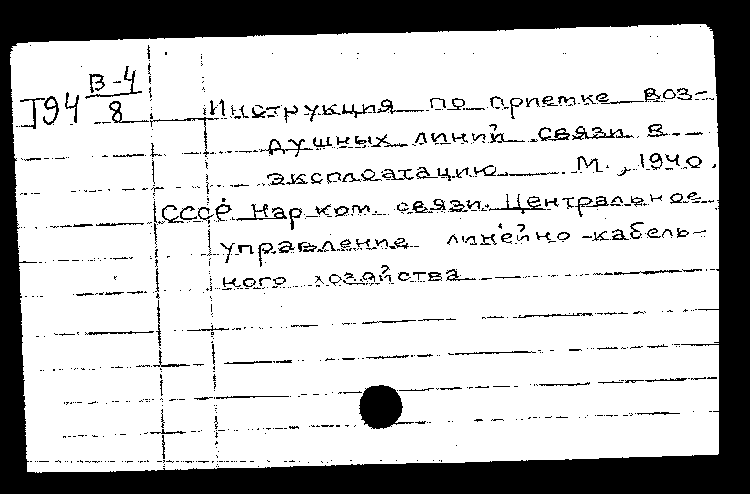 Т94 В-4/8
Инструкция по приемке воз-
душных линий связи в
эксплоатацию. М., 1940.
СССР Нар ком. связи. Центральное
управление линейно-кабель-
ного хозяйства